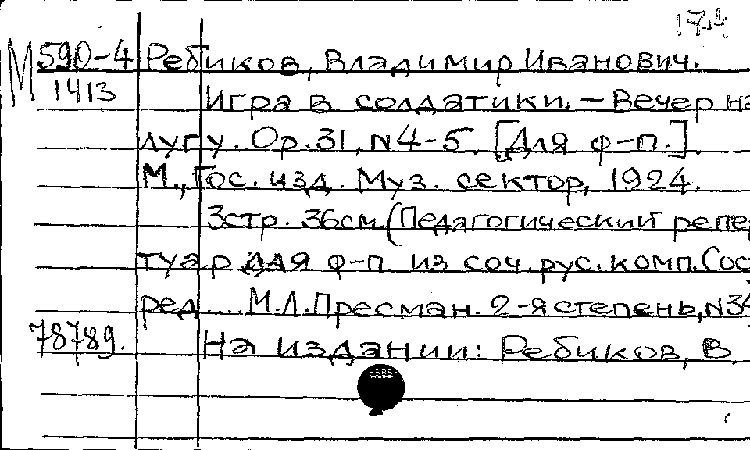 М 590-4 Ребиков, Владимир Иванович.
1413 Игра в солдатики. – Вечер на
лугу. Ор.31, N4-5. [Для ф-п.]
М., Гос. изд. Муз. сектор, 1924.
3стр. 36см. (Педагогический репер
туар для ф-п из соч. рус. комп. Сос
ред.... М.Л. Пресман. 2-я степень, N34
78789. На издании: Ребиков, В